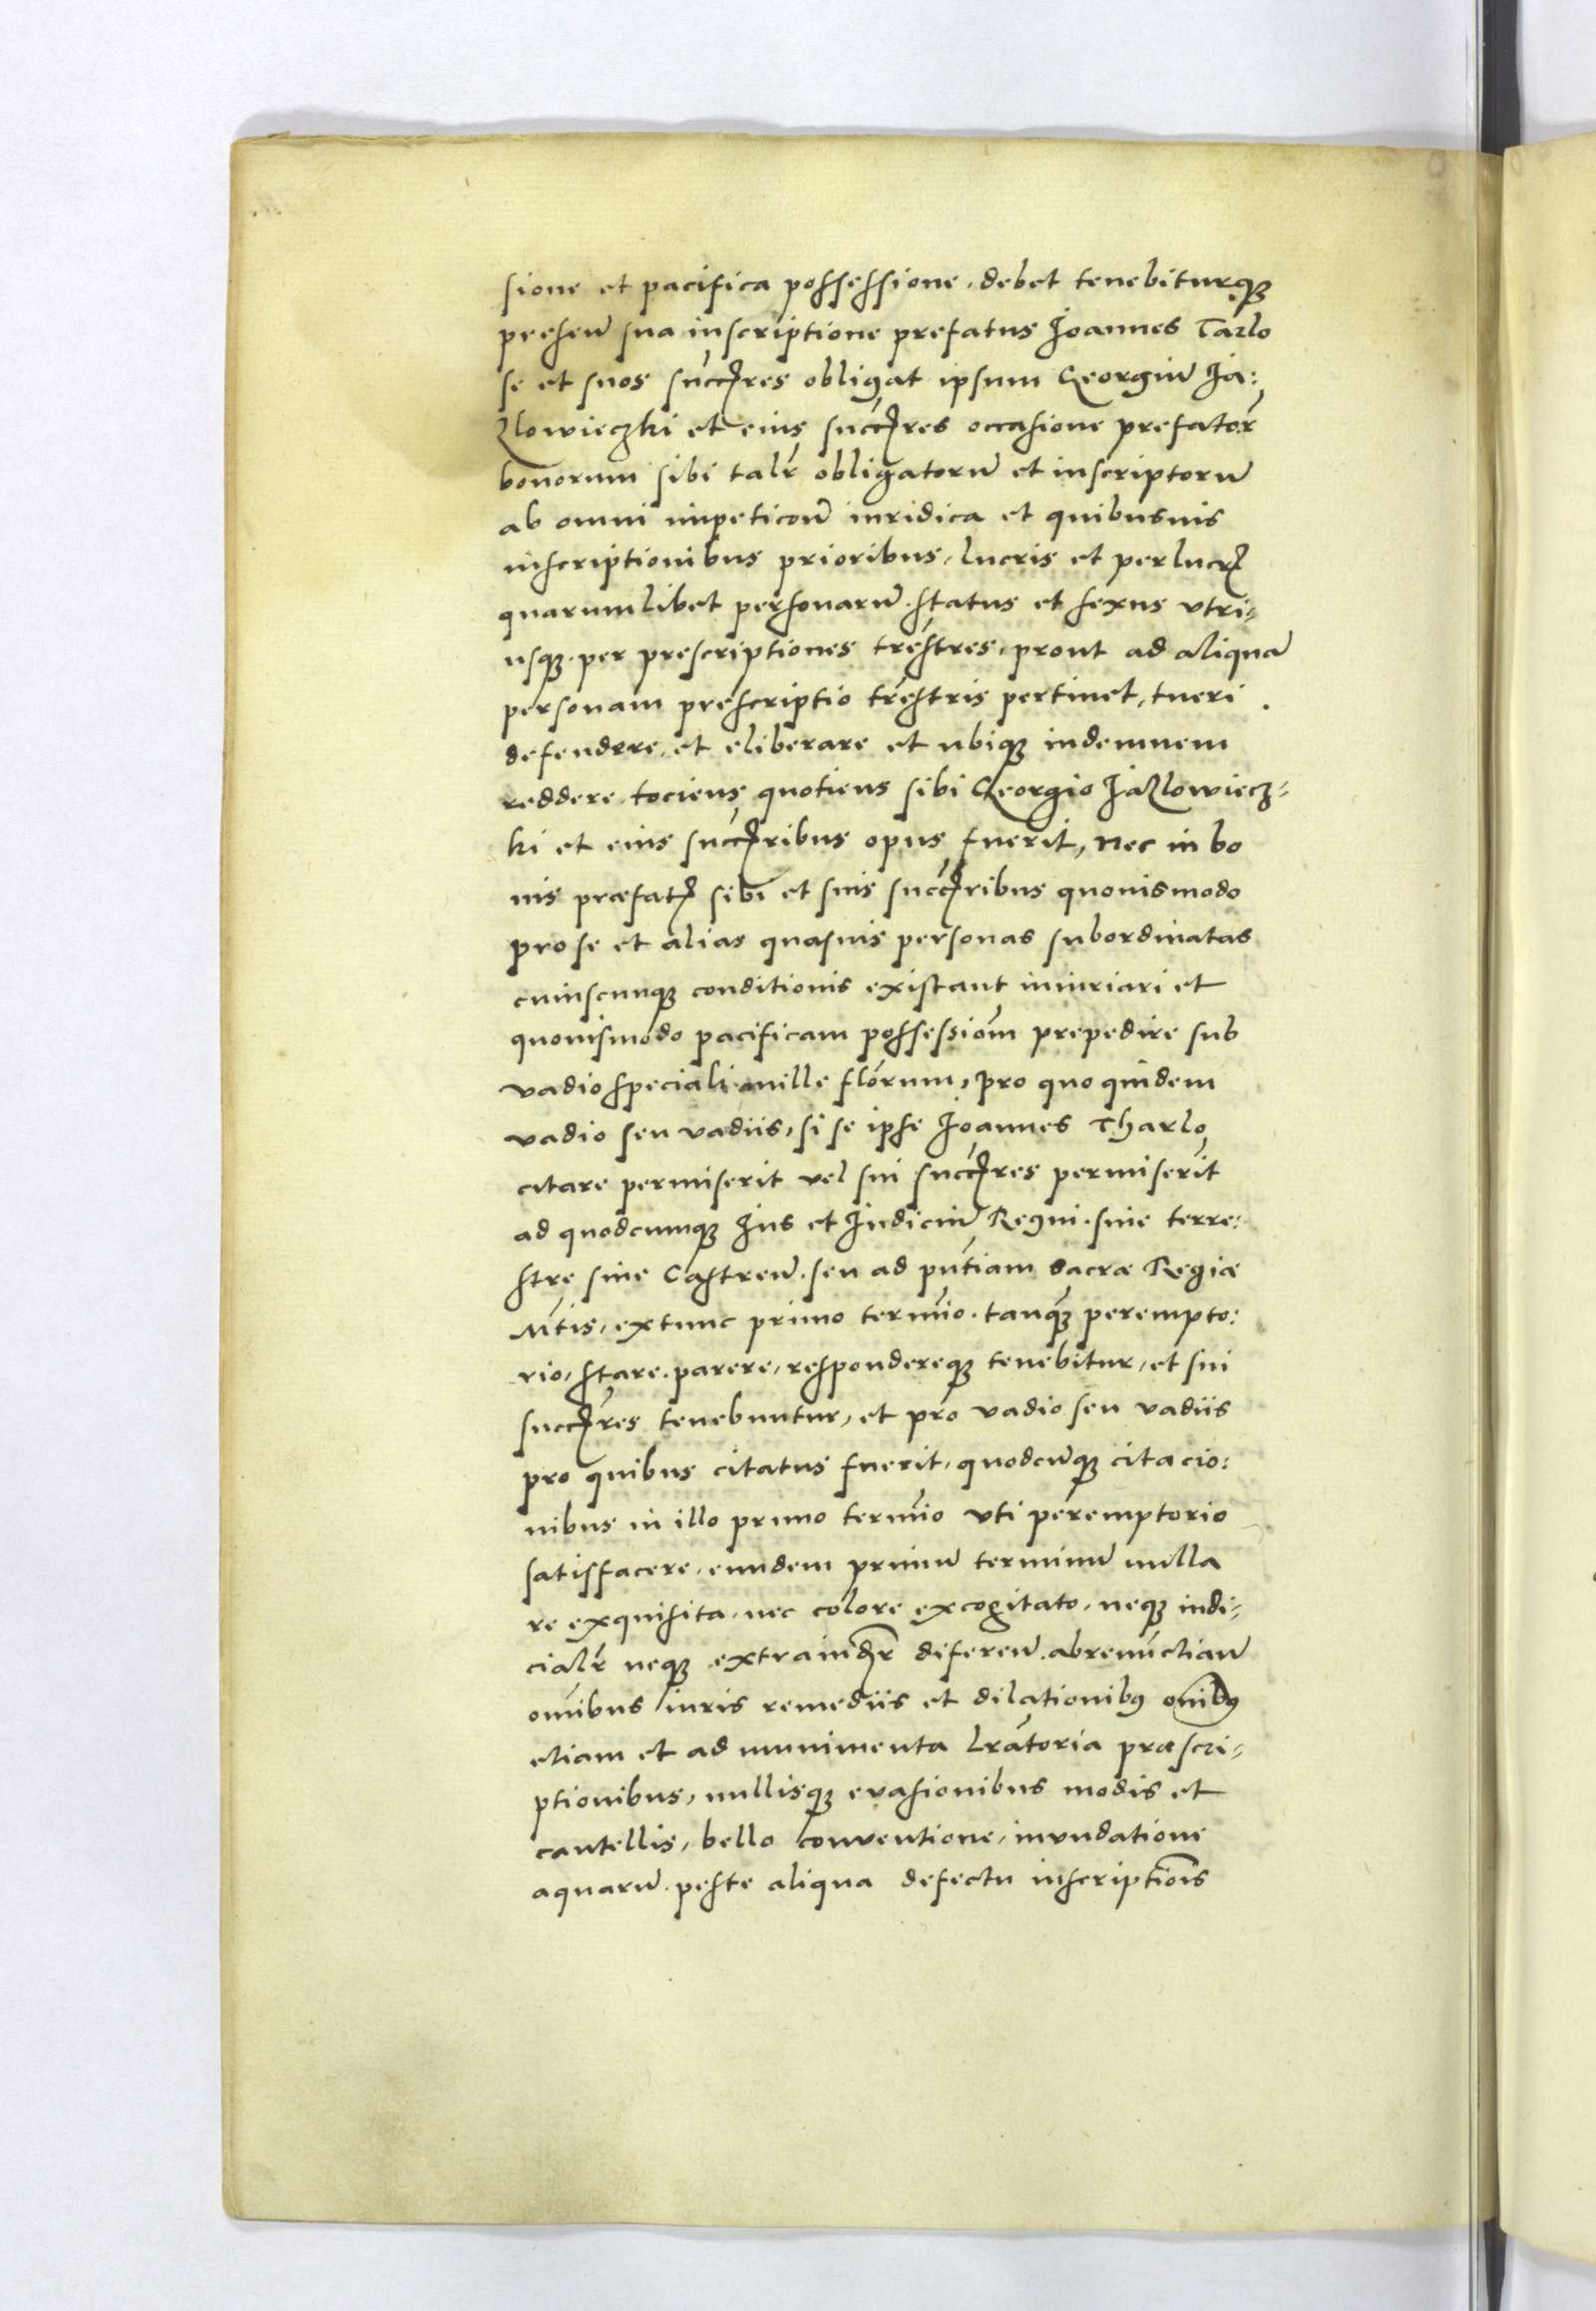 sione et pacifica possessione, debet tenebiturqꝫ
preseñ sua inscriptione prefatus Joannes Tarlo
se et suos succ̃res obligat ipsum Georgiũ Ja:
zlowieczki et eius succ̃res occasione prefator̃
bonorum sibi talr̃ obligatorũ et inscriptorũ
ab omni impeticoñ iuridica et quibusuis
inscriptionibus prioribus, lucris et perlucr̃
quarumlibet personarũ. status et sexus vtri-
usqꝫ. per prescriptiones tres̃tres, prout ad aliquã
personam prescriptio tres̃tris pertinet, tueri
defendere, et eliberare et ubiqꝫ indemnem
reddere tociens quotiens sibi Georgio Jazlowiecz-
ki et eius succ̃ribus opus fuerit, nec in bo
nis præfat̃ sibi et suis succ̃ribus quouismodo
pro se et alias quasuis personas subordinatas
cuiuscunqꝫ conditionis existant iniuriari et
quouismodo pacificam possessiõm prepedire sub
vadio speciali mille flõrum, pro quo quidem
vadio seu vadiis, si se ipse Joannes Tharlo
citare permiserit vel sui succ̃res permiserit
ad quodcunqꝫ Jus et Judiciũ Regni. siue terre:
stre siue Castreñ. seu ad pũtiam Sacræ Regiæ
Mt̃is, extunc primo termĩo. tanq̃ꝫ perempto:
rio, stare. parere, respondereqꝫ tenebitur, et sui
succ̃res tenebuntur, et pro vadio seu vadiis
pro quibus citatus fuerit, quodcũqꝫ citacio:
nibus in illo primo termĩo vti peremptorio
satisfacere, eundem primũ terminũ nulla
re exquisita, nec colore excogitato, neqꝫ iudi-
cialr̃ neqꝫ extraiudr̃ difereñ. abrenũctiañ
omĩbus iuris remediis et dilationib9 onĩb9
etiam et ad munimenta lrãtoria præscri-
ptionibus, nullisqꝫ euasionibus modis et
cautellis, bello conventione, inundatione
aquarũ. peste aliqua defectu inscriptiõis